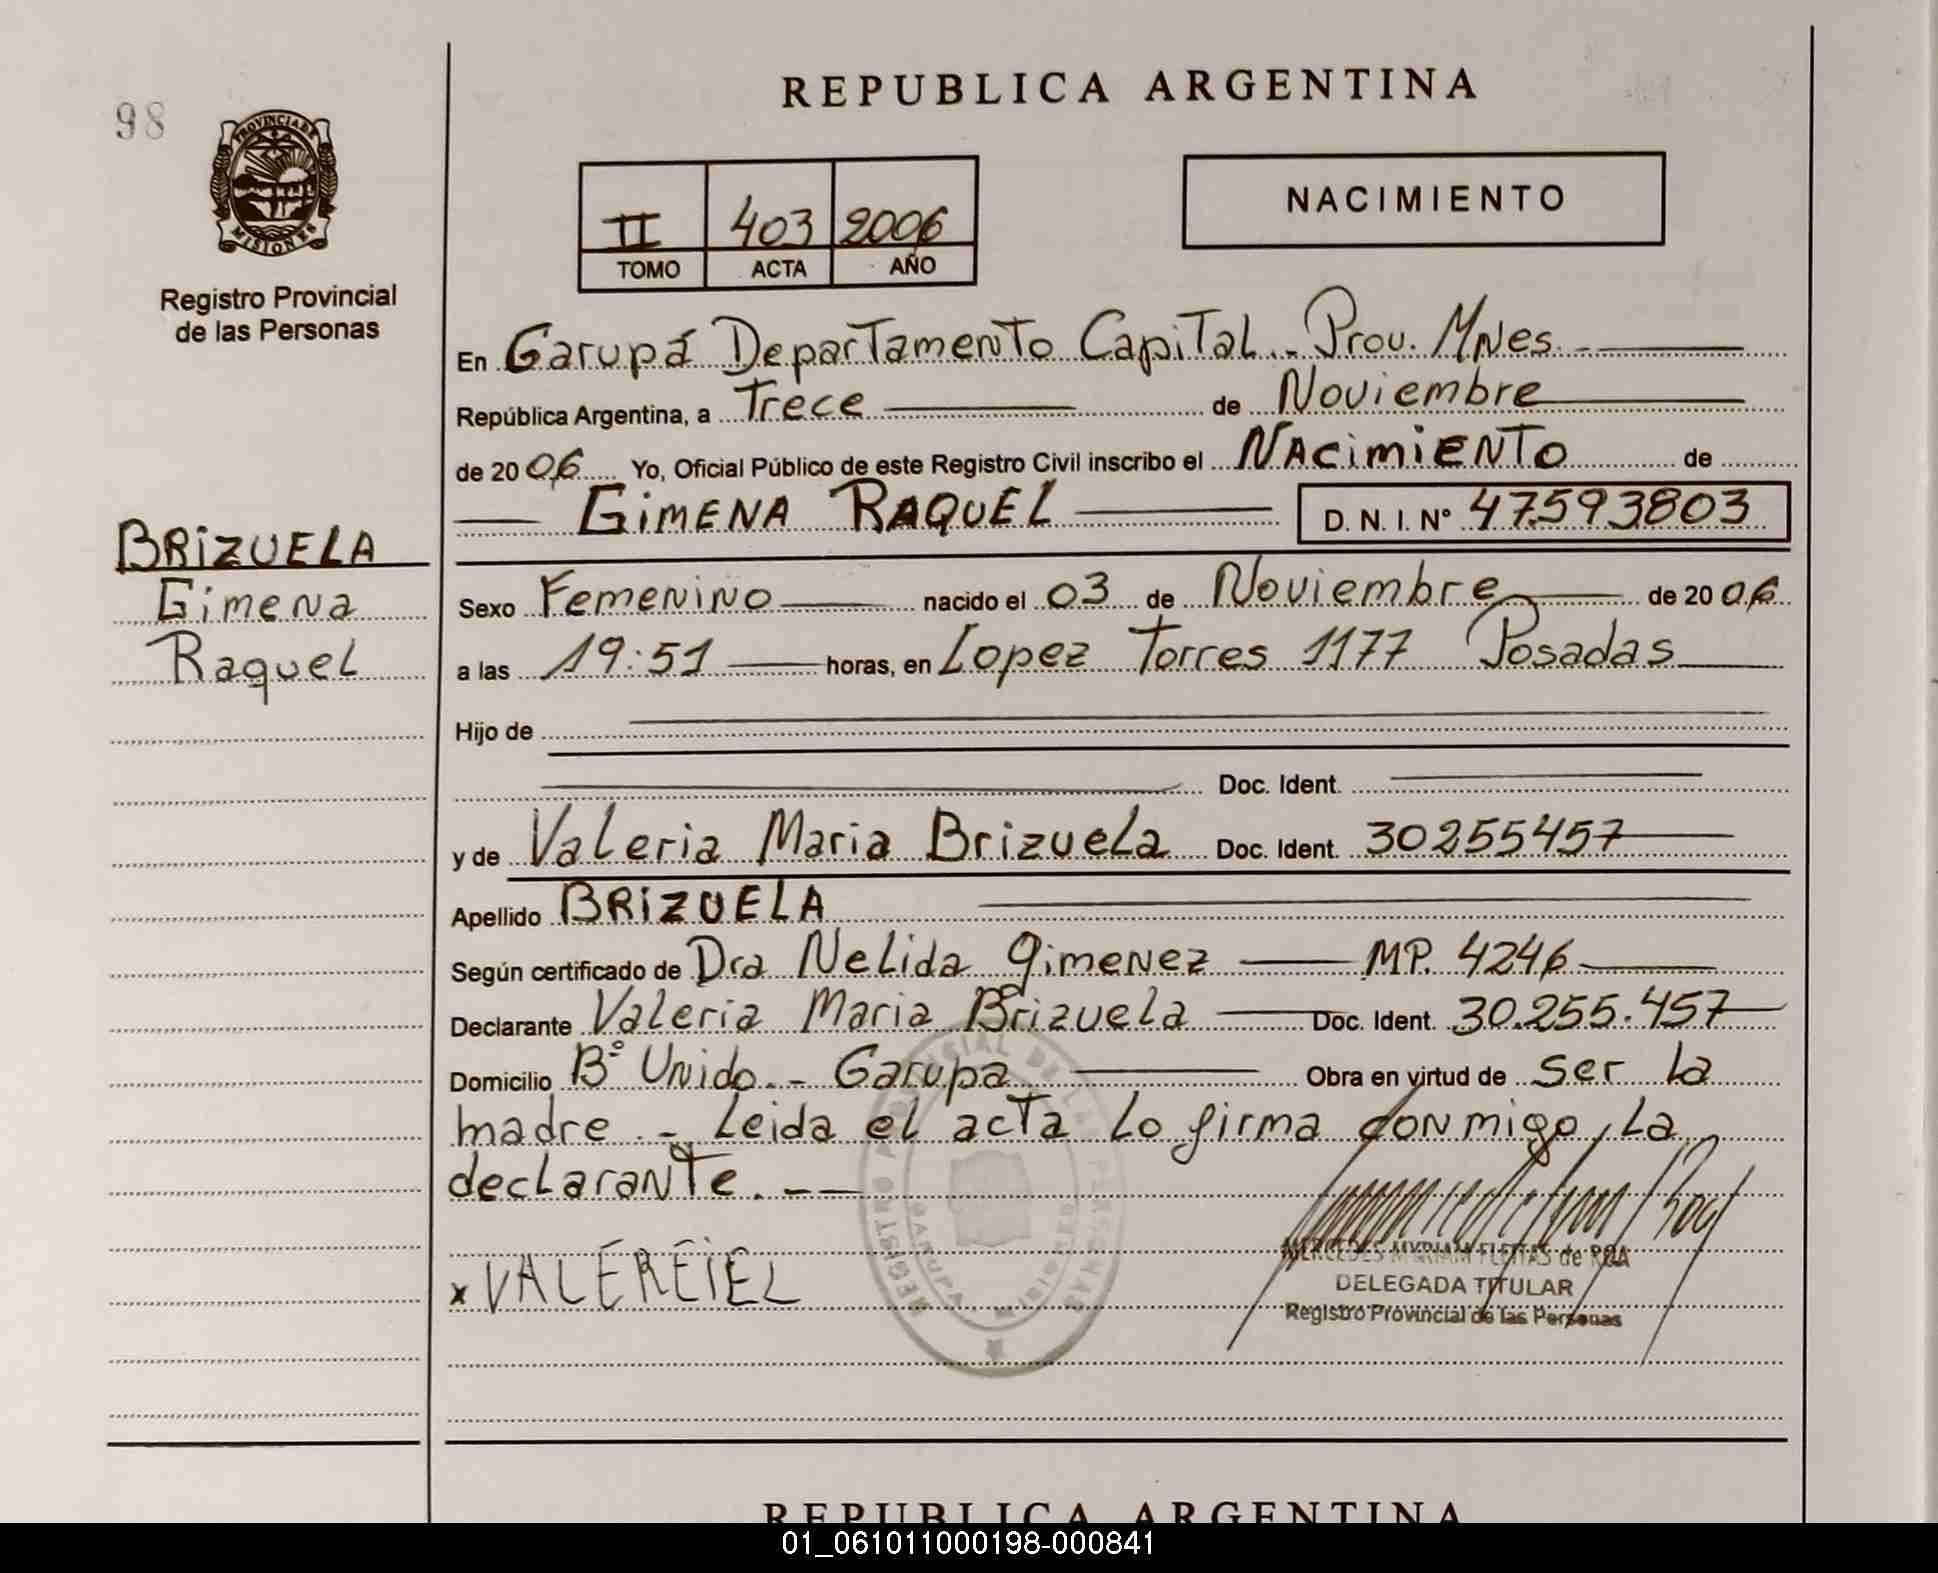 REPUBLICA ARGENTINA
98
PROVINCIA DE
MISIONES
Registro Provincial
de las Personas
II 403 2006
TOMO ACTA AÑO
NACIMIENTO
En Garupá Departamento Capital.- Prov. Mnes.-
República Argentina, a Trece de Noviembre
de 2006 Yo, Oficial Público de este Registro Civil inscribo el Nacimiento de
GIMENA RAQUEL D. N. I. Nº 47593803
BRIZUELA
Gimena
Raquel
Sexo Femenino nacido el 03 de Noviembre de 2006
a las 19:51 horas, en Lopez Torres 1177 Posadas
Hijo de
Doc. Ident.
y de Valeria Maria Brizuela Doc. Ident. 30255457
Apellido BRIZUELA
Según certificado de Dra Nelida Gimenez MP. 4246
Declarante Valeria Maria Brizuela Doc. Ident. 30.255.457
Domicilio Bº Unido.- Garupa Obra en virtud de ser la
madre.- Leida el acta lo firma conmigo, la
declarante.--
x VALEREIEL
REGISTRO PROVINCIAL DE LAS PERSONAS
GARUPA - MISIONES
MERCEDES MYRIAM FLEITAS de ROA
DELEGADA TITULAR
Registro Provincial de las Personas
REPUBLICA ARGENTINA
01_061011000198-000841